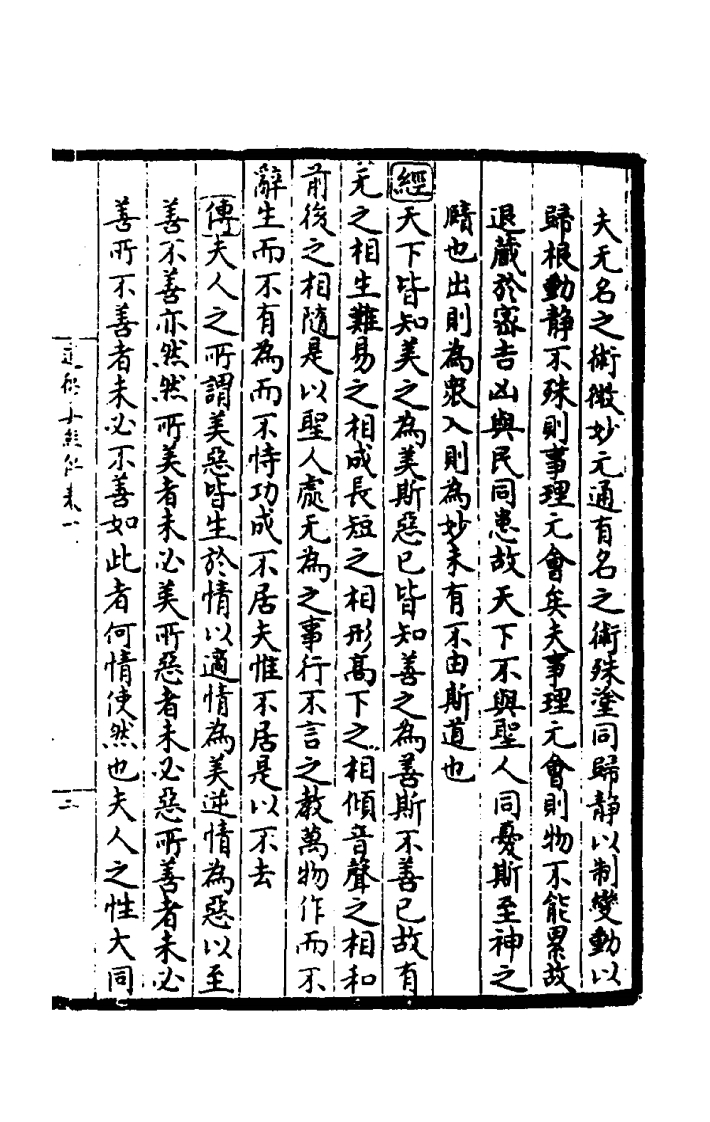 夫无名之術微妙元通有名之術殊塗同歸静以制變動以
歸根動静不殊則事理元會矣夫事理元會則物不能累故
退藏於密吉凶與民同患故天下不與聖人同憂斯至神之
賾也出則為衆入則為妙未有不由斯道也
經天下皆知美之為美斯惡已皆知善之為善斯不善已故有
无之相生難易之相成長短之相形高下之相傾音聲之相和
前後之相隨是以聖人處无為之事行不言之教萬物作而不
辭生而不有為而不恃功成不居夫惟不居是以不去
傳夫人之所謂美惡皆生於情以適情為美逆情為惡以至
善不善亦然然所美者未必美所惡者未必惡所善者未必
善所不善者未必不善如此者何情使然也夫人之性大同
二